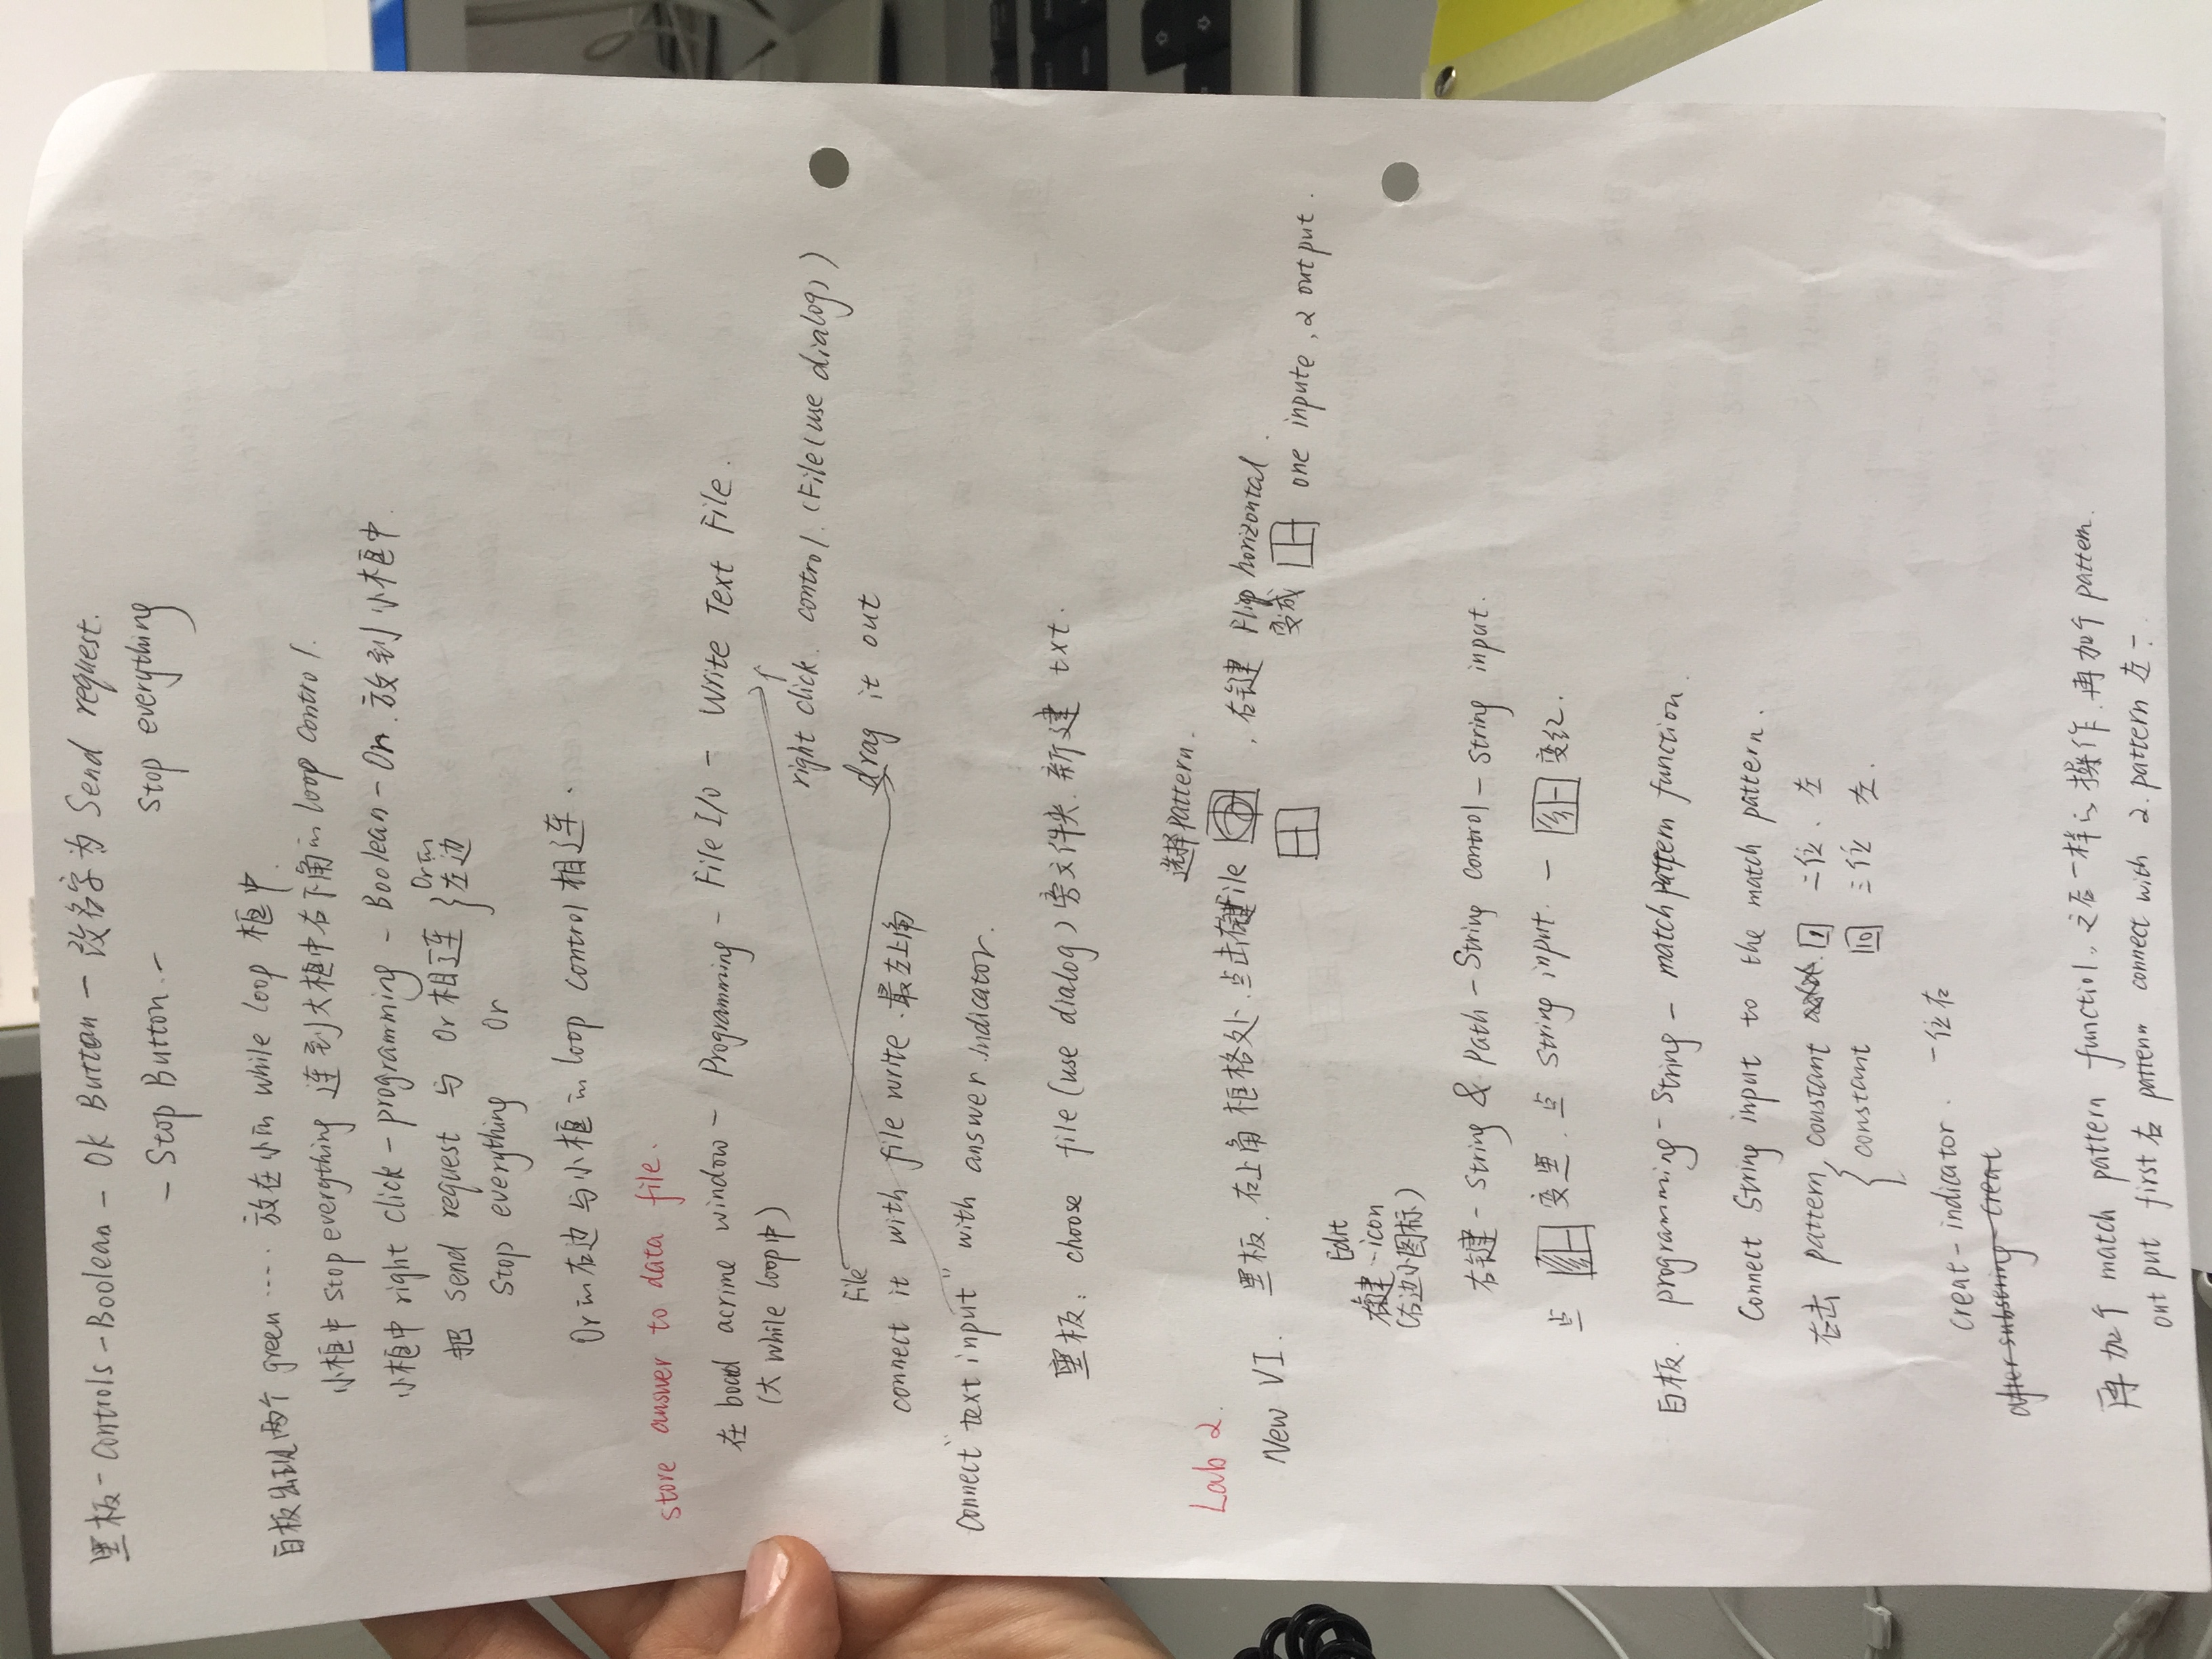 黑板-controls-Boolean-Ok Button-改名字为 Send request.
- Stop Button.- Stop everything
白板出现两个 green .... 放在小的 while loop 框中.
小框中 stop everything 连到大框中右下角的 loop control.
小框中 right click - programming - Boolean - Or 放到小框中.
把 send request 与 Or 相连 } Or的左边
Stop everything Or
Or的右边与小框的 loop control 相连.
store answer to data file.
在 window - Programming - File I/O - Write Text File.
(大 while loop中)
right click. control. (File (use dialog))
File drag it out
connect it with file write.最左上角
Connect "text input" with answer indicator.
黑板: choose file (use dialog) 旁文件夹.新建 txt.
选择pattern.
Lab 2.
New VI. 黑板.右上角框格处.点击右键 , 右键 Flip horizontal.
变成 one inpute, 2 output.
Edit
右键-icon
(右边小图标)
右键-String & Path-String control-String input.
点 变黑.点 String input. - 变红.
白板. programming-String-match pattern function.
Connect String input to the match pattern.
右击 pattern, constant 二位、左
constant 10 三位 左.
creat-indicator. 一位右
after substring-creat
再加个 match pattern functiol.之后一样的操作.再加个 pattern.
out put first右 pattern connect with 2. pattern 左一.